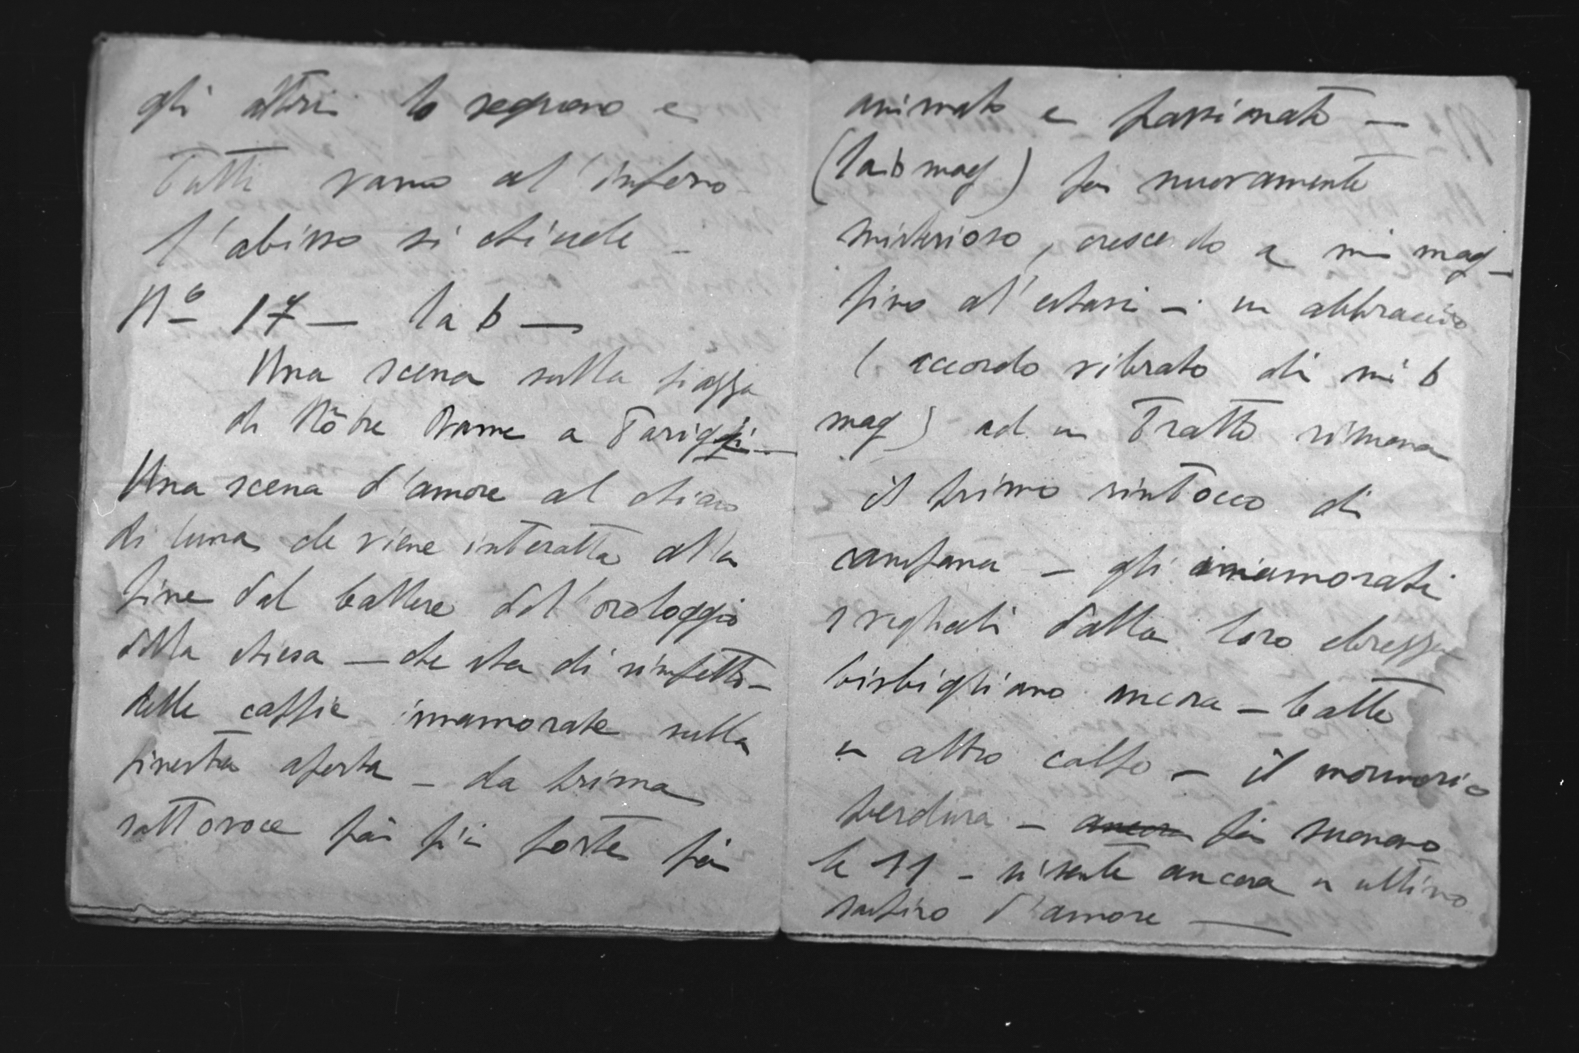 gli altri lo seguono e
Tutti vanno al'inferno
l'abisso si chiude –
Nº 17 — la b —
Una scena sulla piazza
di Nôtre Dame a Pariggi —
Una scena d'amore al chiaro
di luna che viene interotta alla
fine dal battere del'orologgio
della chiesa — che sta di rimpetto –
delle coppie innamorate sulla
finestra aperta – da prima
sottovoce poi più forte poi
animato e passionato —
(la b mag) poi nuovamente
misterioso, crescendo a mi mag –
fino al'estasi – un abbraccio
(accordo vibrato di mi b
mag) ad un Tratto risuona
il primo rintocco di
campana – gli innamorati
svegliati dalla loro ebrezza
bisbigliano ancora – batte
un altro colpo – il mormorio
perdura – ancora poi suonano
le 11 – si sente ancora un ultimo
sospiro d'amore —